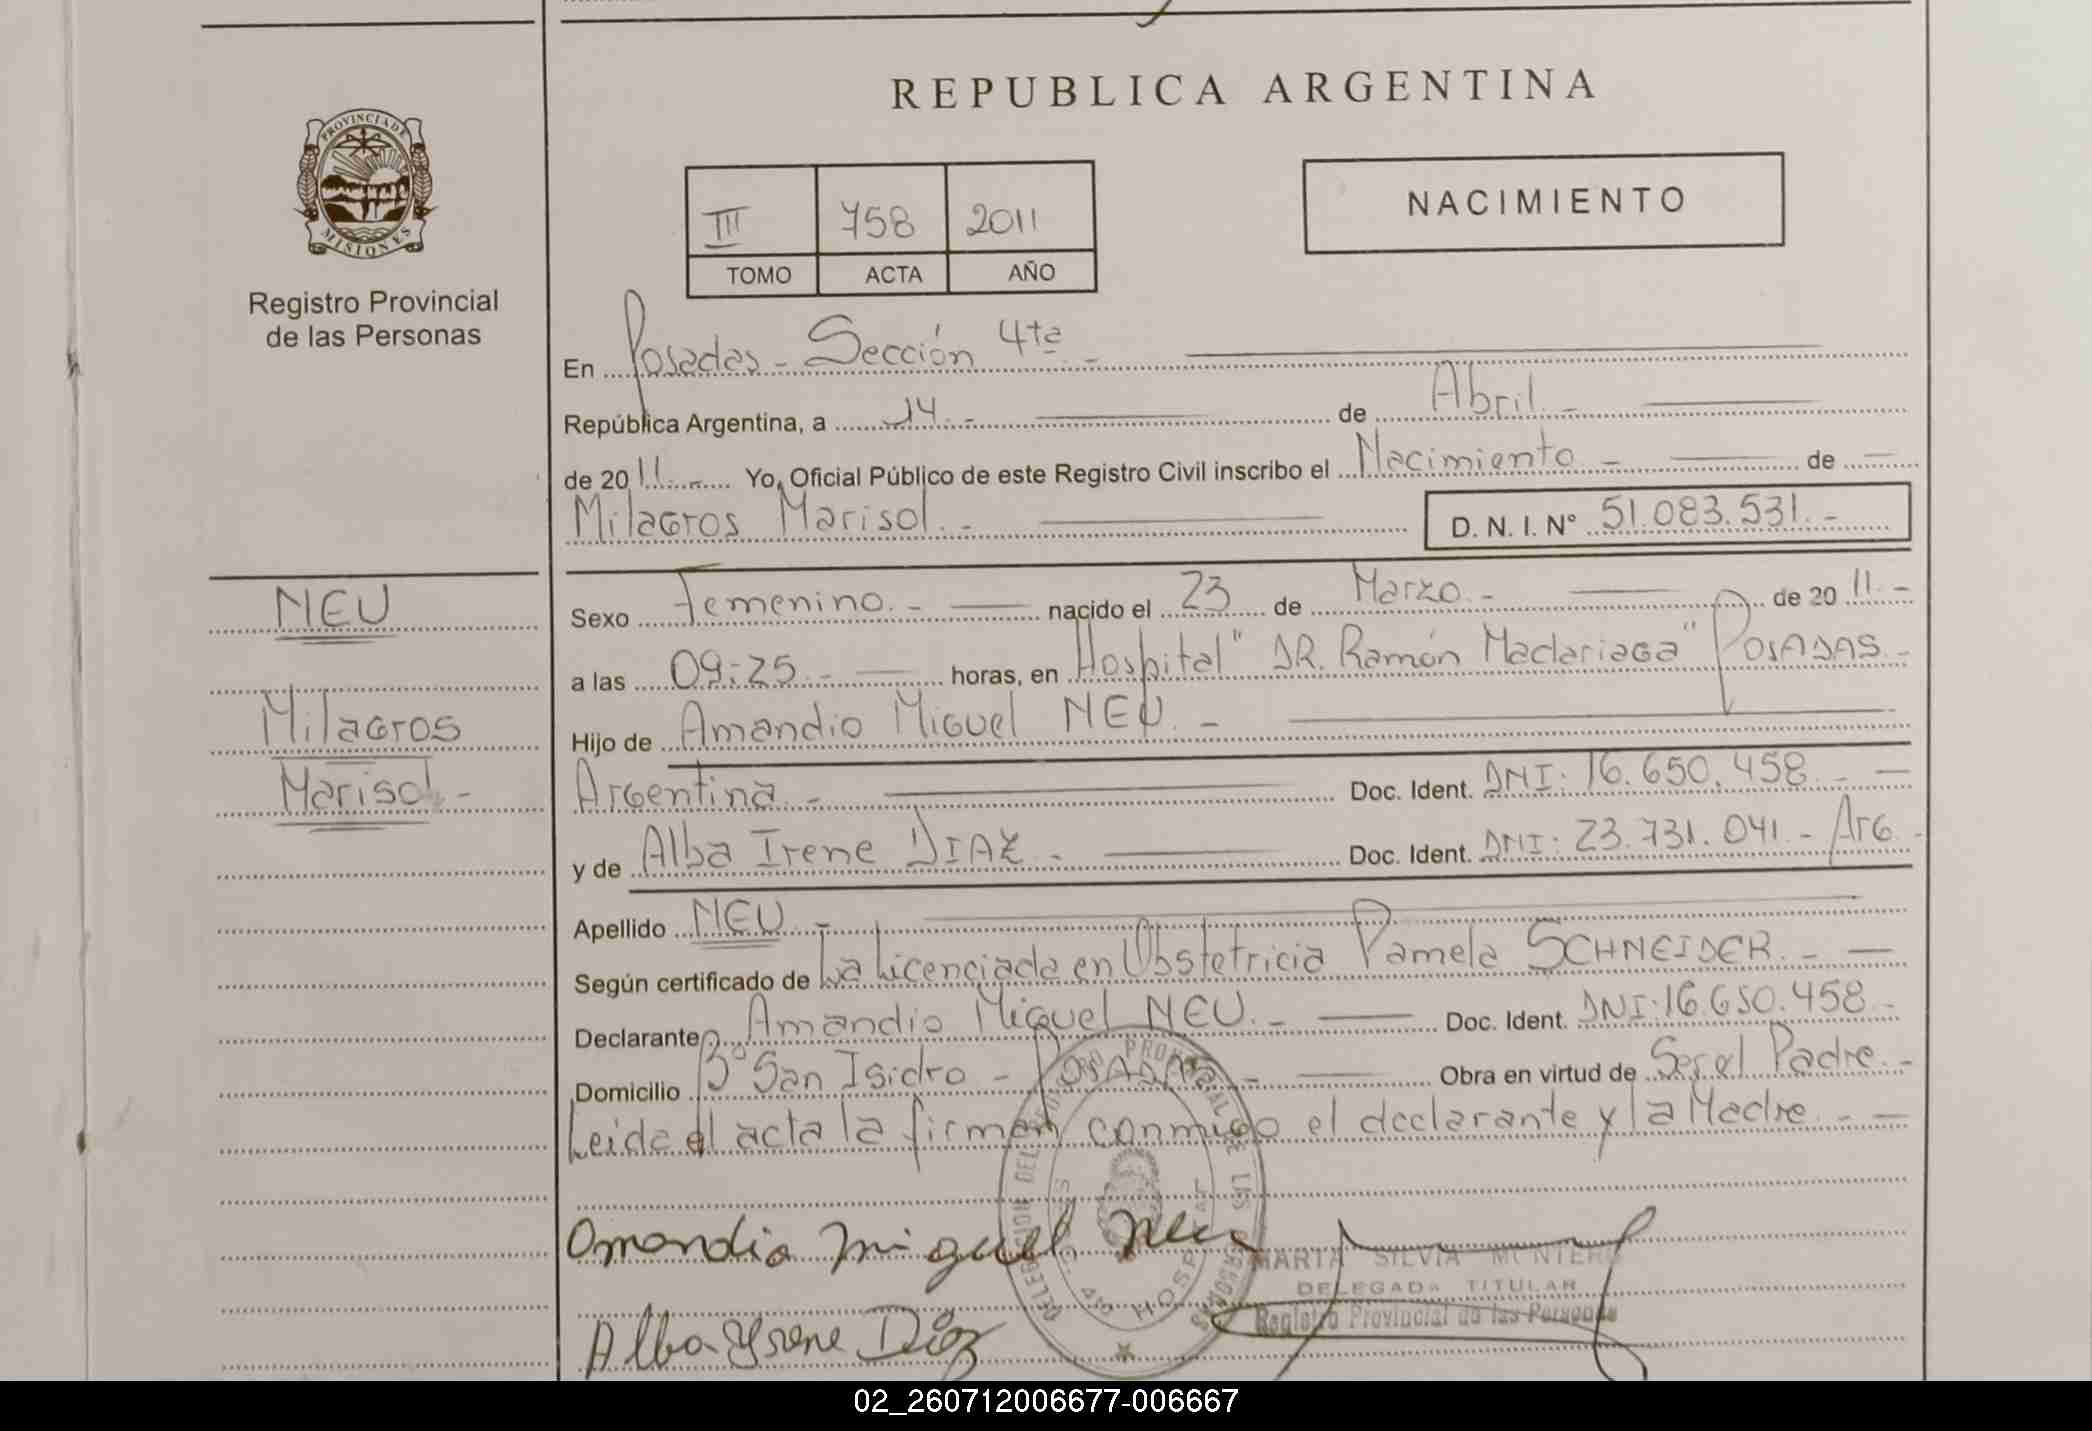 REPUBLICA ARGENTINA
PROVINCIA DE
MISIONES
Registro Provincial
de las Personas
III 758 2011
TOMO ACTA AÑO
NACIMIENTO
En Posadas - Sección 4ta -
República Argentina, a 14.- de Abril.-
de 2011.- Yo, Oficial Público de este Registro Civil inscribo el Nacimiento - de —
Milagros Marisol.- D. N. I. N° 51.083.531.-
NEU
Milagros
Marisol -
Sexo Femenino.- nacido el 23 de Marzo.- de 2011.-
a las 09:25.- horas, en Hospital "DR. Ramón Madariaga" POSADAS.-
Hijo de Amandio Miguel NEU.-
Argentina.- Doc. Ident. DNI: 16.650.458.-
y de Alba Irene DIAZ.- Doc. Ident. DNI: 23.731.041.- Arg.-
Apellido NEU.-
Según certificado de La Licenciada en Obstetricia Pamela SCHNEIDER.-
Declarante Amandio Miguel NEU.- Doc. Ident. DNI: 16.650.458.-
Domicilio B° San Isidro - POSADAS.- Obra en virtud de Ser el Padre.-
Leida el acta la firman conmigo el declarante y la Madre.-
Amandio Miguel Neu
MARTA SILVIA MONTERO
DELEGADA TITULAR
Registro Provincial de las Personas
Alba Yrene Díaz
02_260712006677-006667